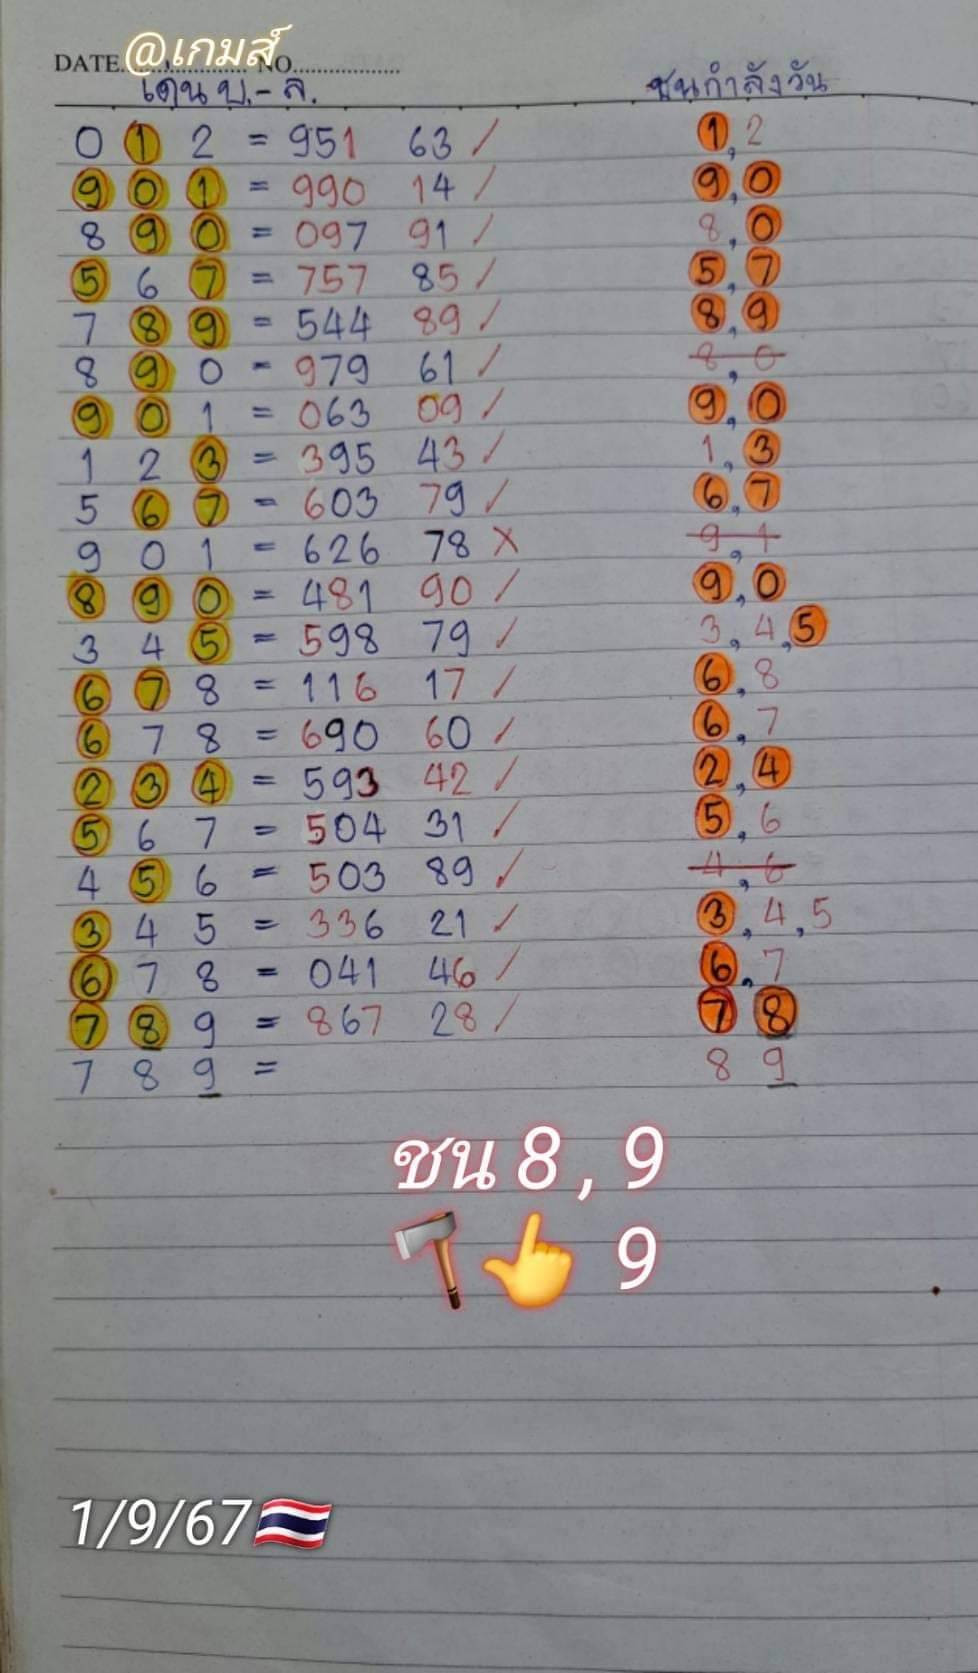 @เกมส์
DATE NO
เดน บ.- ล. ชนกำลังวัน
0 1 2 = 951 63 / 1,2
9 0 1 = 990 14 / 9,0
8 9 0 = 097 91 / 8,0
5 6 7 = 757 85 / 5,7
7 8 9 = 544 89 / 8,9
8 9 0 = 979 61 / 8,0
9 0 1 = 063 09 / 9,0
1 2 3 = 395 43 / 1,3
5 6 7 = 603 79 / 6,7
9 0 1 = 626 78 X 9,1
8 9 0 = 481 90 / 9,0
3 4 5 = 598 79 / 3,4,5
6 7 8 = 116 17 / 6,8
6 7 8 = 690 60 / 6,7
2 3 4 = 593 42 / 2,4
5 6 7 = 504 31 / 5,6
4 5 6 = 503 89 / 4,6
3 4 5 = 336 21 / 3,4,5
6 7 8 = 041 46 / 6,7
7 8 9 = 867 28 / 7 8
7 8 9 = 8 9
ชน 8 , 9
9
1/9/67